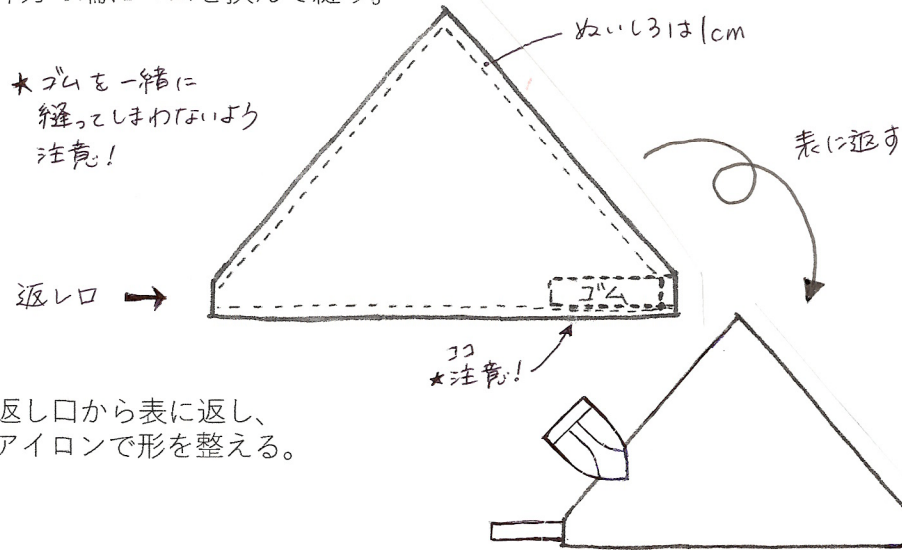 を挟んで縫う。
ぬいしろは1cm
★ゴムを一緒に
縫ってしまわないよう
注意!
表に返す
返し口 →
ゴム
ココ
★注意!
返し口から表に返し、
アイロンで形を整える。